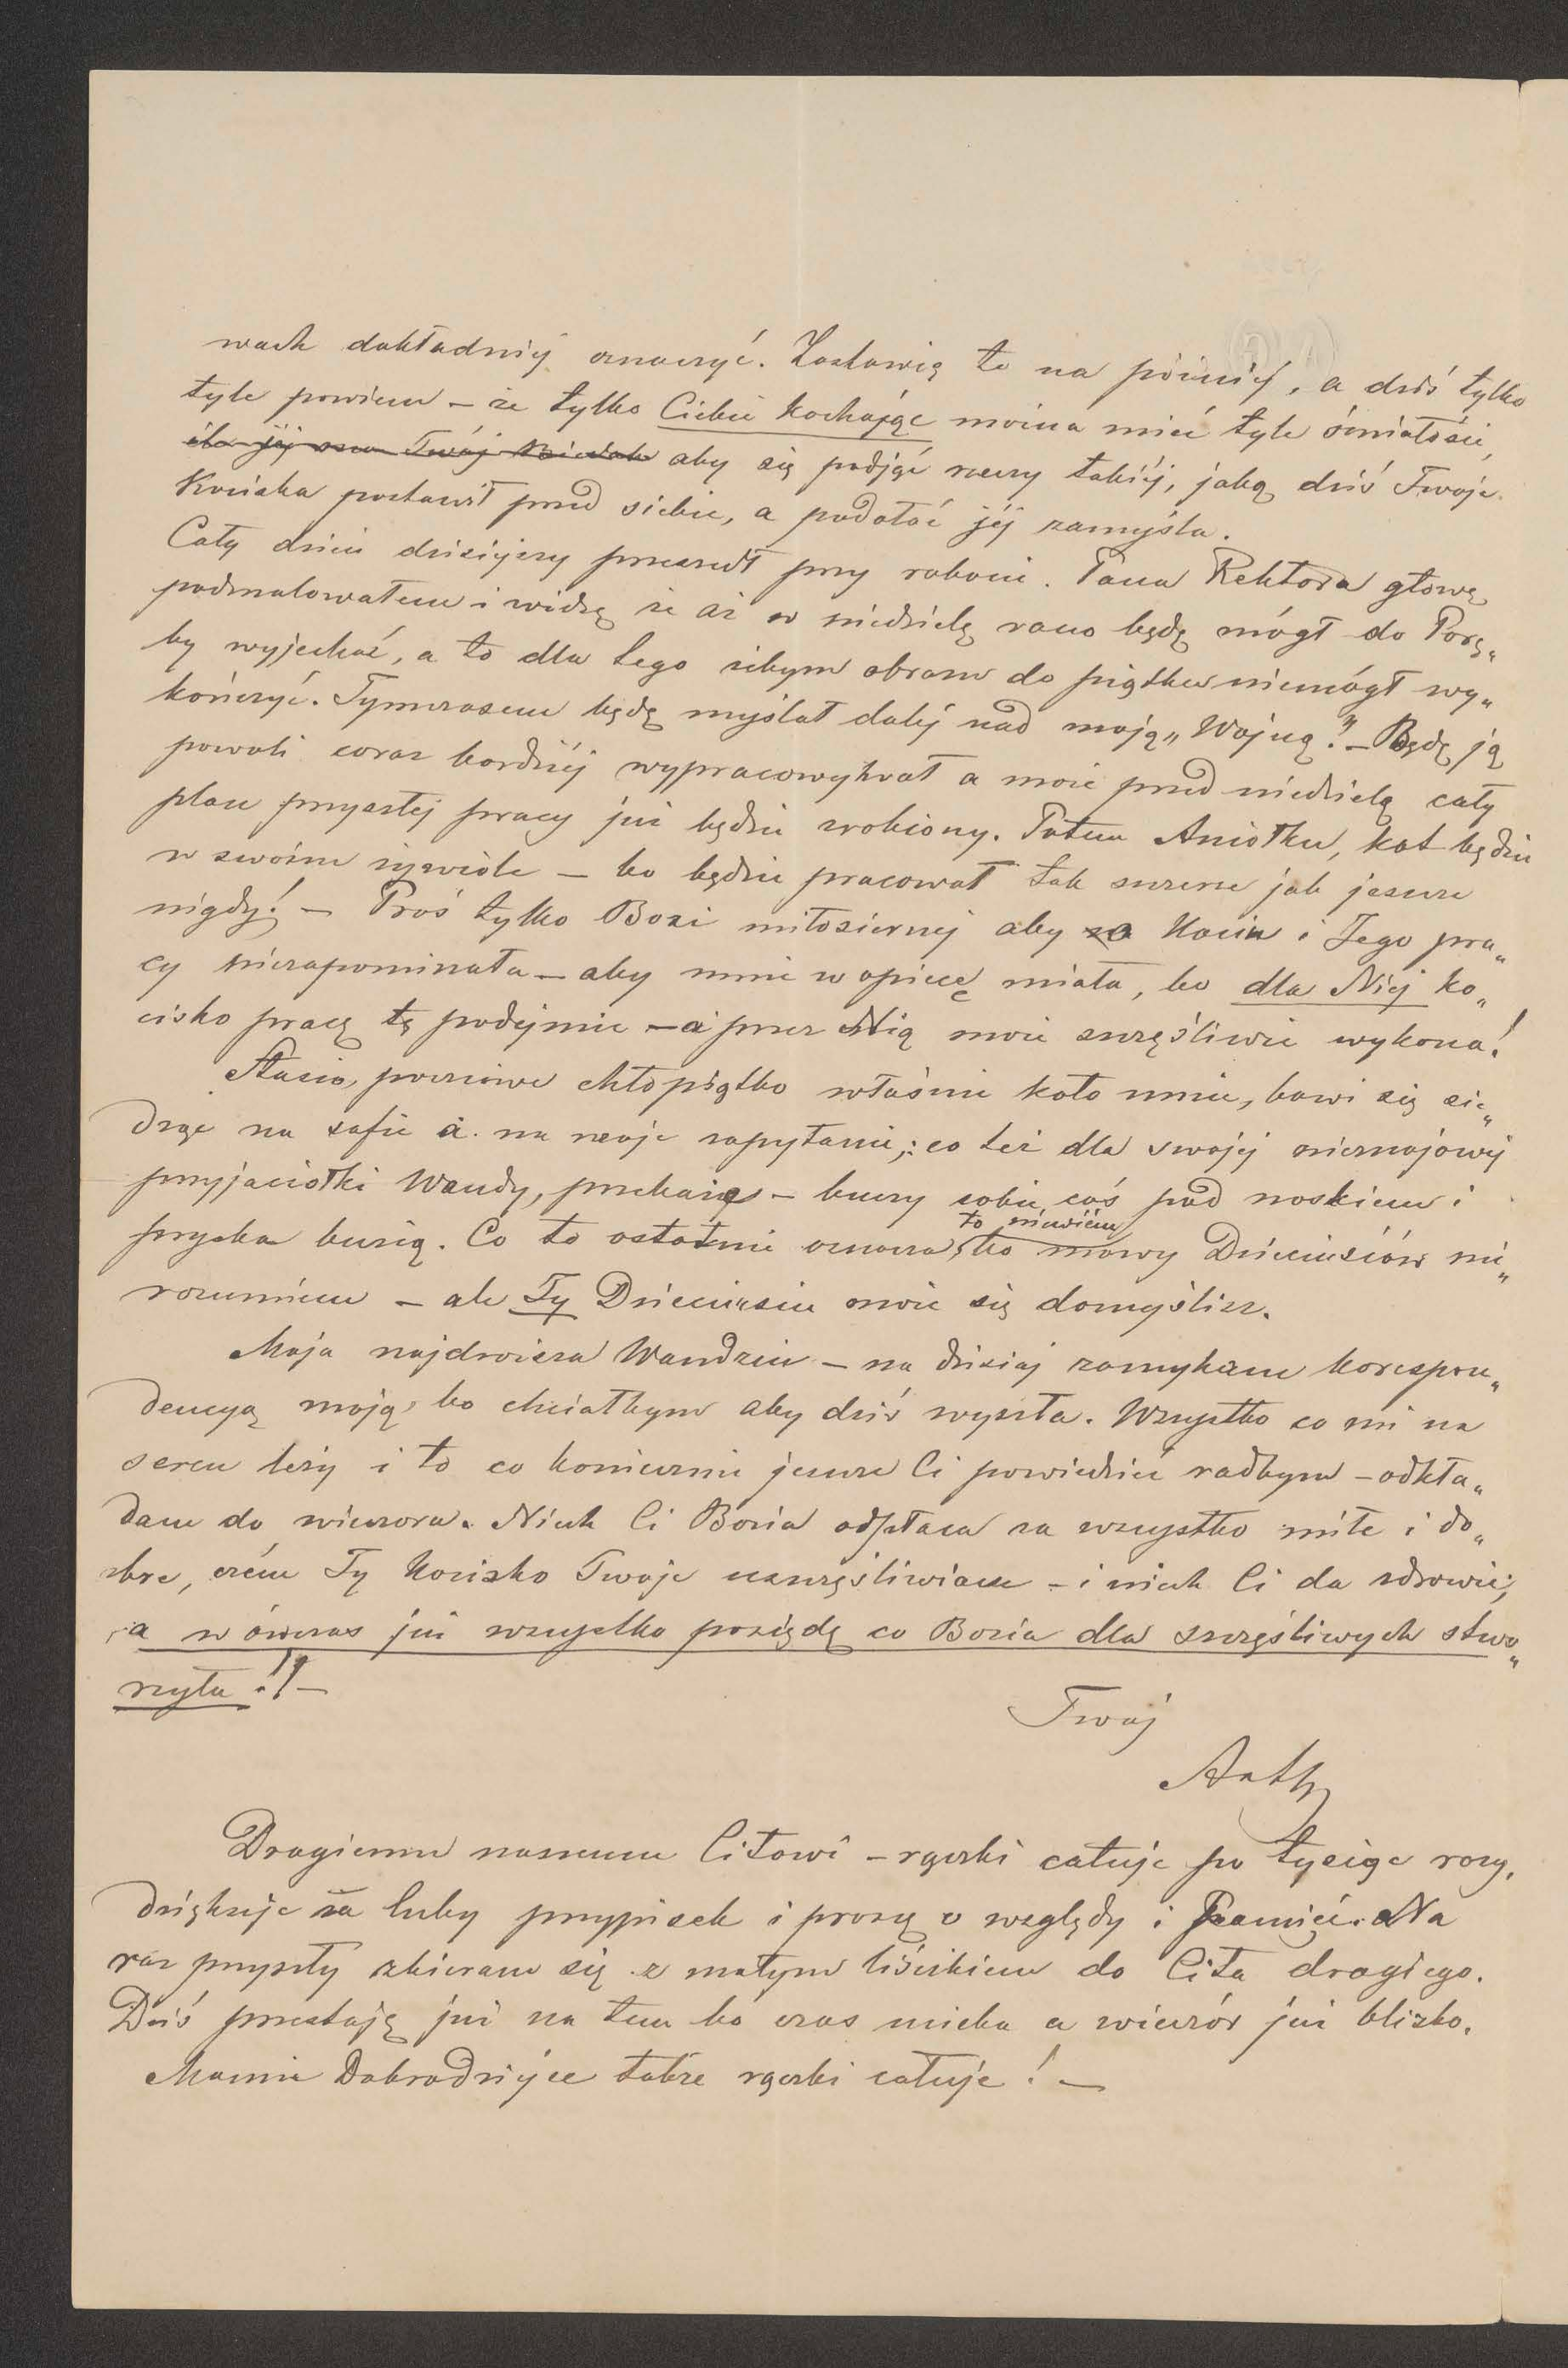 wach dokładniej oznaczyć. Zostawię to na później, a dziś tylko
tyle powiem – że tylko Ciebie kochając można mieć tyle śmiałości,
ile jéj ma Twój aby się podjąć rzeczy takiéj, jaką dziś Twoje
Kocisko postawił przed siebie, a podołać jéj zamyśla.
Cały dzień dzisiejszy przeszedł przy robocie. Pana Rektora głowę
podmalowałem i widzę że aż w niedzielę rano będę mógł do Porę„
by wyjechać, a to dla tego żebym obrazu do piątku niemógł wy„
kończyć. Tymczasem będę myślał daléj nad moją „Wojną”. – Będę ją
powoli coraz bardziéj wypracowywał a może przed niedzielą cały
plan przyszłej pracy już będzie zrobiony. Potem Aniołku, kot będzie
w swoim żywiole – bo będzie pracował tak szczerze jak jeszcze
nigdy! – Proś tylko Bozi miłosiernej aby o Kociu i Jego pra„
cy niezapominała – aby mnie w opiece miała, bo dla Niej ko„
cisko pracę tę podejmie – a przez Nią może szczęśliwie wykona!
Stasio, poczciwe chłopiątko właśnie koło mnie, bawi się sie„
dząc na sofie a na moje zapytanie,: co też dla swojej nieznajomej
przyjaciółki Wandy, przekaże – buczy sobie coś pod noskiem i
pryska buzią. Co to ostatnie oznacza, to niewiém bo mowy Dzieciusiów nie„
rozumiem – ale Ty Dzieciusiu może się domyślisz.
Moja najdroższa Wandziu – na dzisiaj zamykam korespon„
dencyą moją, bo chciałbym aby dziś wyszła. Wszystko co mi na
sercu leży i to co koniecznie jeszcze Ci powiedzieć radbym – odkła„
dam do wieczora. Niech Ci Bozia odpłaca za wszystko miłe i do„
bre, czém Ty Kocisko Twoje uszczęśliwiasz – i niech Ci da zdrowie,
a wówczas już wszystko posiędę co Bozia dla szczęśliwych stwo„
rzyła!! –
Twój
Drogiemu naszemu Citowi – rączki całuję po tysiąc razy,
dziękuję za luby przypisek i proszę o względy i Pamięć. Na
raz przyszły zbieram się z małym liścikiem do Cita drogiego.
Dziś przestaję już na tem bo czas ucieka a wieczór już blizko.
Mamie Dobrodziejce także rączki całuję! –